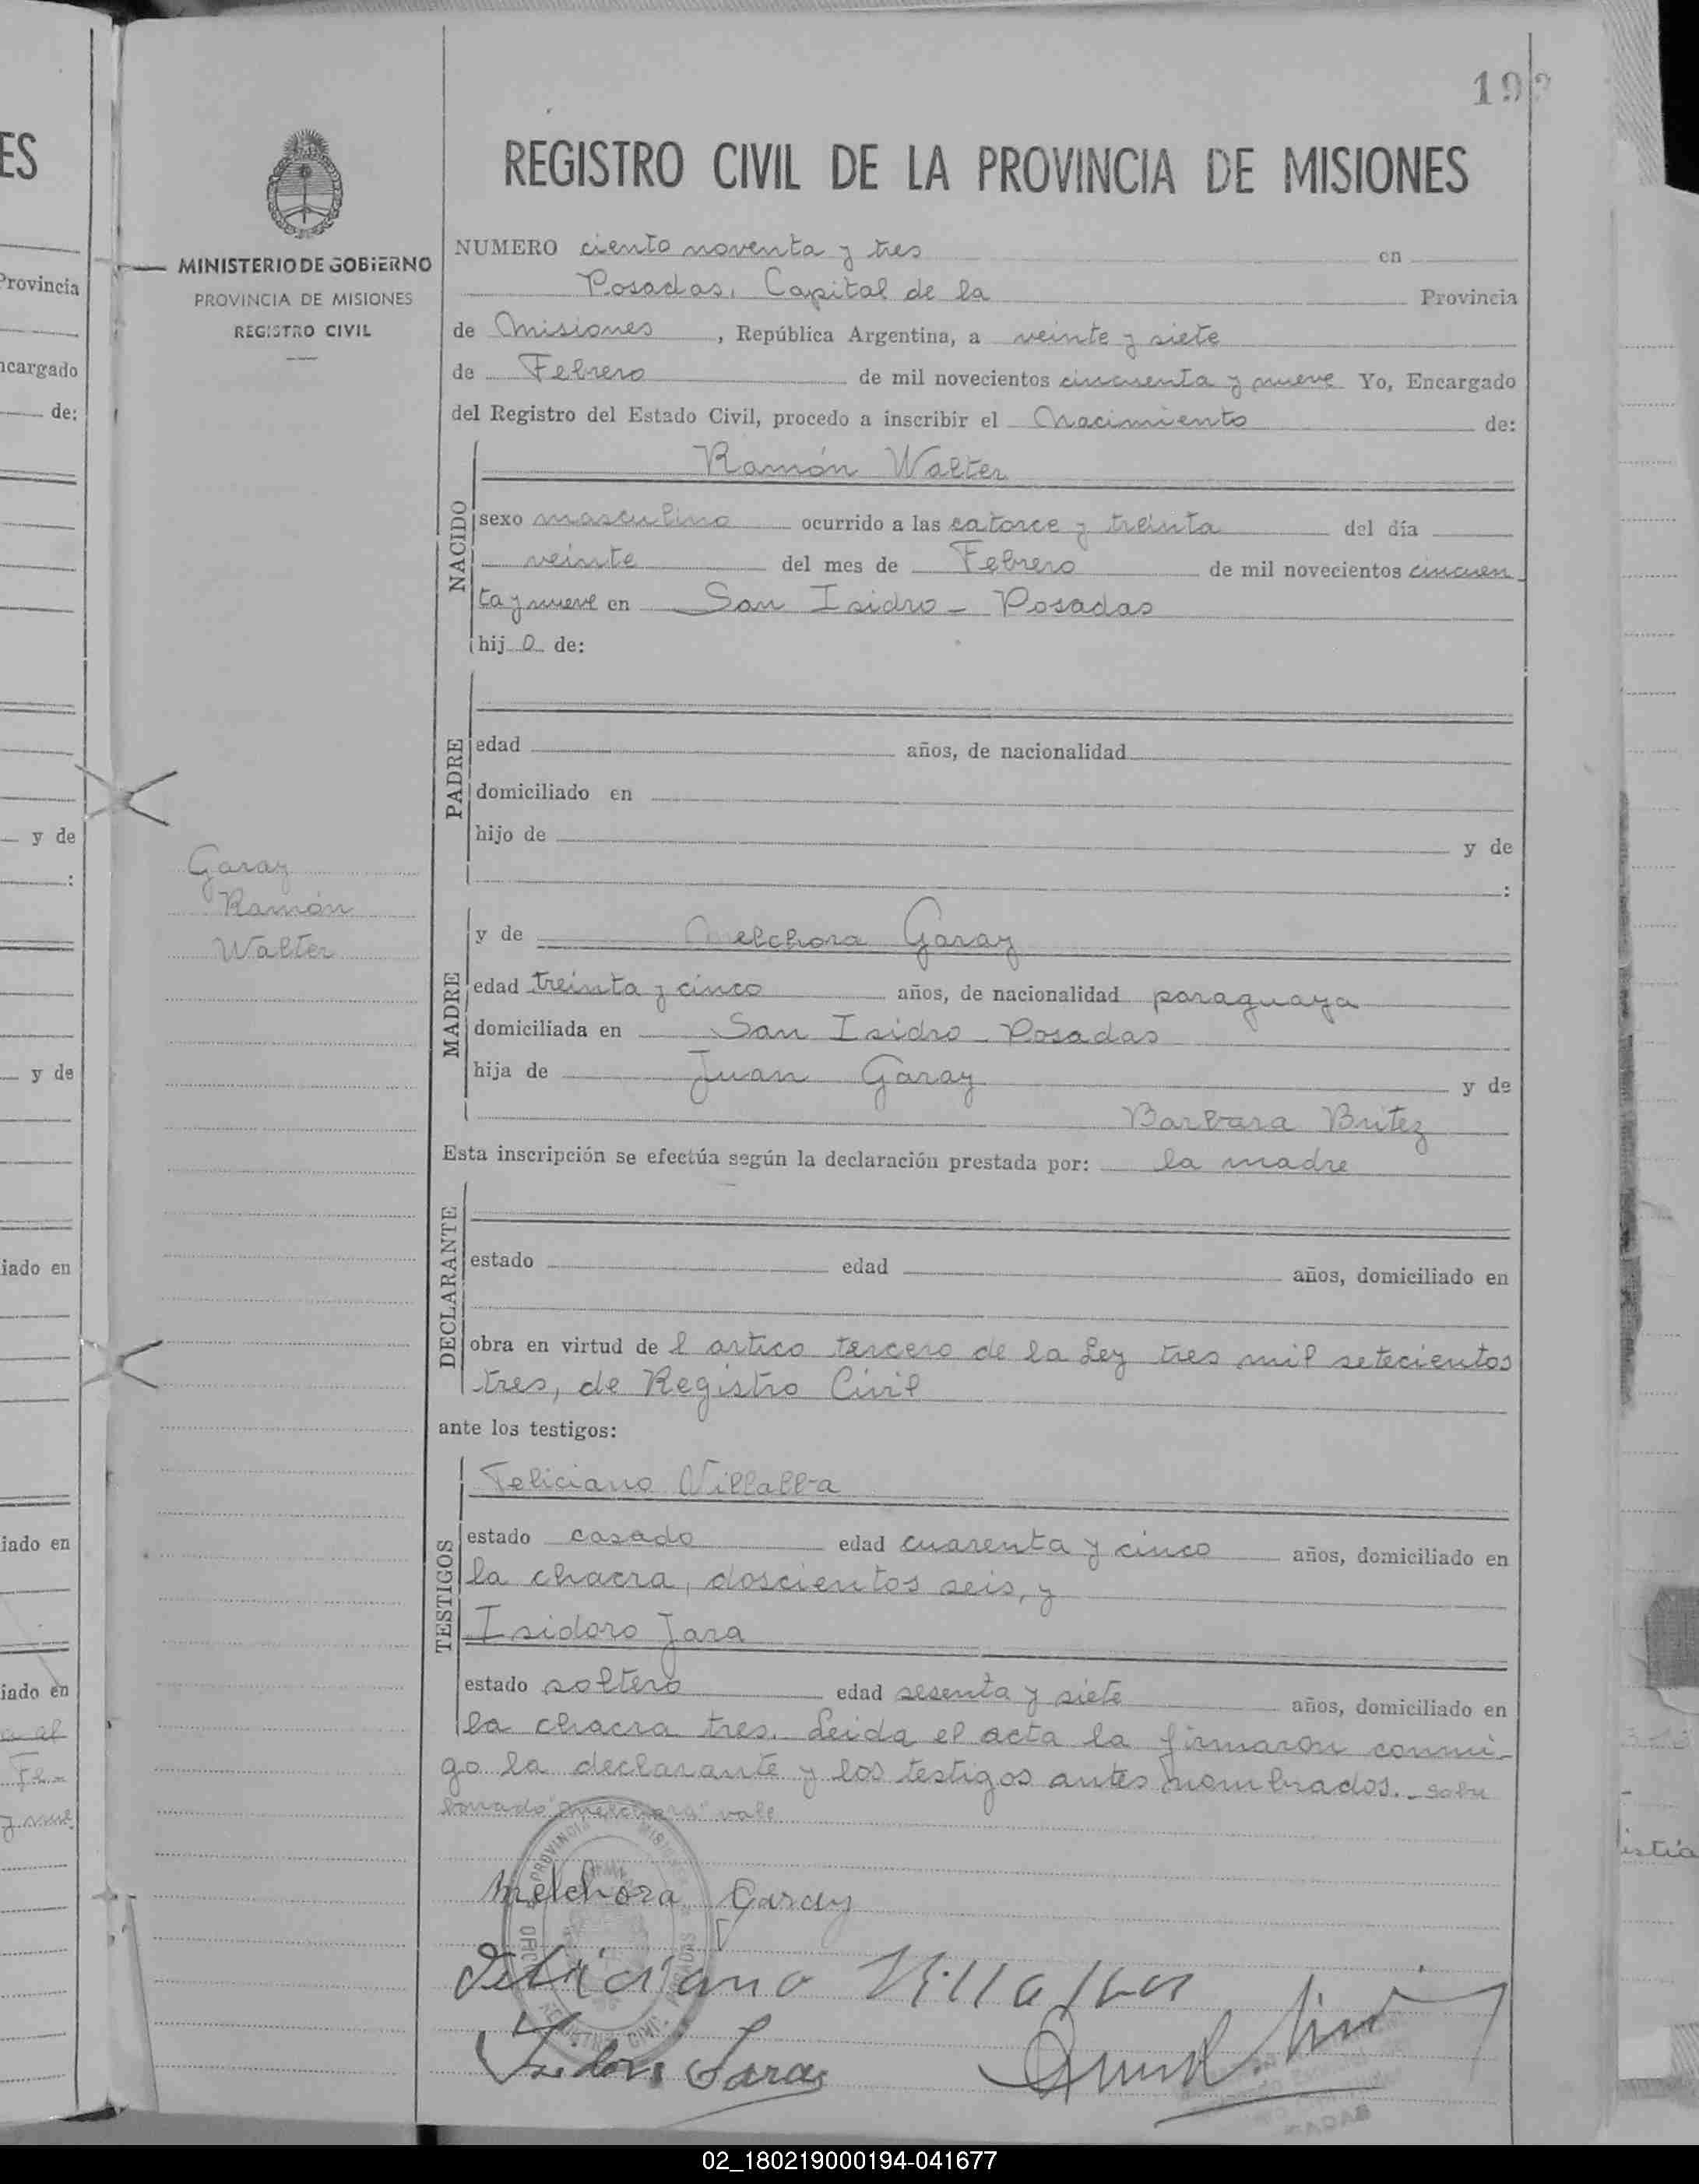 192
ES
REGISTRO CIVIL DE LA PROVINCIA DE MISIONES
MINISTERIO DE GOBIERNO
PROVINCIA DE MISIONES
REGISTRO CIVIL
NUMERO ciento noventa y tres en
Posadas, Capital de la Provincia
de Misiones, República Argentina, a veinte y siete
de Febrero de mil novecientos cincuenta y nueve Yo, Encargado
del Registro del Estado Civil, procedo a inscribir el Nacimiento de:
NACIDO
Ramón Walter
sexo masculino ocurrido a las catorce y treinta del día
veinte del mes de Febrero de mil novecientos cincuen
ta y nueve en San Isidro - Posadas
hijo de:
PADRE
edad años, de nacionalidad
domiciliado en
hijo de y de
:
Garay
Ramón
Walter
MADRE
y de Melchora Garay
edad treinta y cinco años, de nacionalidad paraguaya
domiciliada en San Isidro - Posadas
hija de Juan Garay y de
Barbara Britez
Esta inscripción se efectúa según la declaración prestada por: la madre
DECLARANTE
estado edad años, domiciliado en
obra en virtud del artico tercero de la Ley tres mil setecientos
tres, de Registro Civil
ante los testigos:
TESTIGOS
Feliciano Villalba
estado casado edad cuarenta y cinco años, domiciliado en
la chacra, doscientos seis, y
Isidoro Jara
estado soltero edad sesenta y siete años, domiciliado en
la chacra tres. Leida el acta la firmaron conmi-
go la declarante y los testigos antes nombrados. - Sobre
borrado "Melchora" vale
Melchora Garay
Feliciano Villalba
Isidoro Jara
Provincia
ncargado
de:
y de
:
y de
iado en
iado en
iado en
02_180219000194-041677